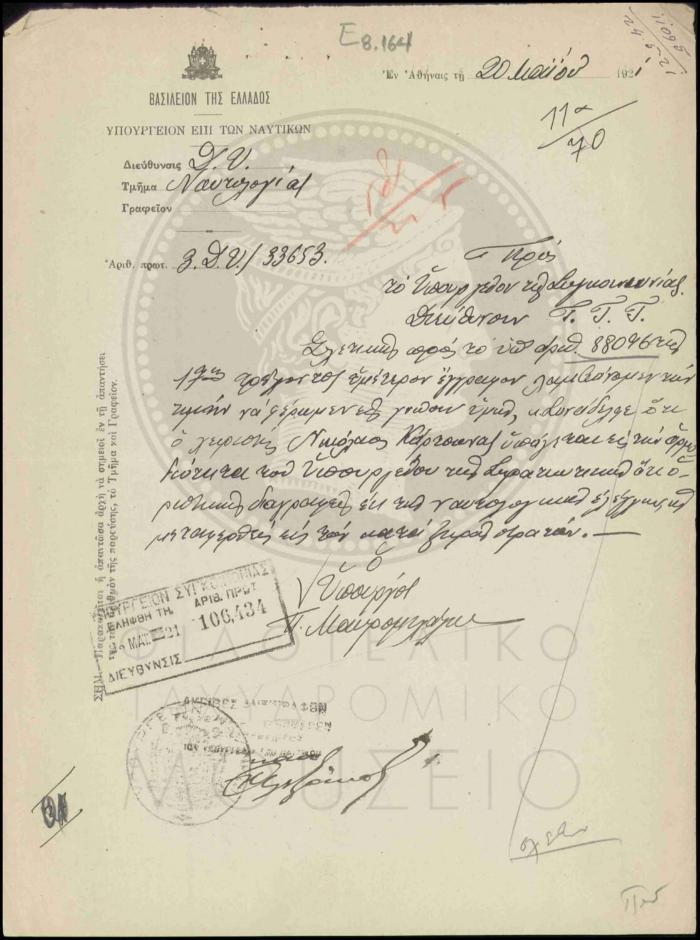 Ε 8.164
Ἐν Ἀθήναις τῇ 20 Μαΐου 1921
ΒΑΣΙΛΕΙΟΝ ΤΗΣ ΕΛΛΑΔΟΣ
ΥΠΟΥΡΓΕΙΟΝ ΕΠΙ ΤΩΝ ΝΑΥΤΙΚΩΝ
11α/70
Διεύθυνσις Δ.Υ.
Τμῆμα Ναυτολογίας
Γραφεῖον
Ἀριθ. πρωτ. 3.Δ.Υ./33653.
Πρὸς
τὸ Ὑπουργεῖον τῆς Συγκοινωνίας
Διεύθυνσιν Τ.Τ.Τ.
Σχετικῶς πρὸς τὸ ὑπ' ἀριθ. 88046 τῆς
17ης τρέχοντος ὑμέτερον ἔγγραφον λαμβάνομεν τὴν
τιμὴν νὰ φέρωμεν εἰς γνῶσιν ὑμῖν, ὅτι
ὁ χειριστὴς Νικόλαος ὑπάγεται εἰς τὴν ἁρμο
διότητα τοῦ Ὑπουργείου τῶν Στρατιωτικῶν ὡς ὁ
ριστικῶς διαγραφεὶς ἐκ τῆς ναυτολογικῆς
μεταφερθεὶς εἰς τὸν κατὰ ξηρὰν στρατόν.
Ὁ
Ὑπουργὸς
Π. Μαυρομιχάλης
ΣΗΜ.—Παρακαλεῖται ἡ ἀπαντῶσα ἀρχὴ νὰ σημειοῖ ἐν τῇ ἀπαντήσει
της τὸν ἀριθμὸν τῆς παρούσης, τὸ Τμῆμα καὶ Γραφεῖον.
ΥΠΟΥΡΓΕΙΟΝ ΣΥΓΚΟΙΝΩΝΙΑΣ
ΕΛΗΦΘΗ ΤΗ ΑΡΙΘ. ΠΡΩΤ
ΜΑΪ 1921 106,434
ΔΙΕΥΘΥΝΣΙΣ
ΦΙΛΟΤΕΛΙΚΟ
ΤΑΧΥΔΡΟΜΙΚΟ
ΜΟΥΣΕΙΟ